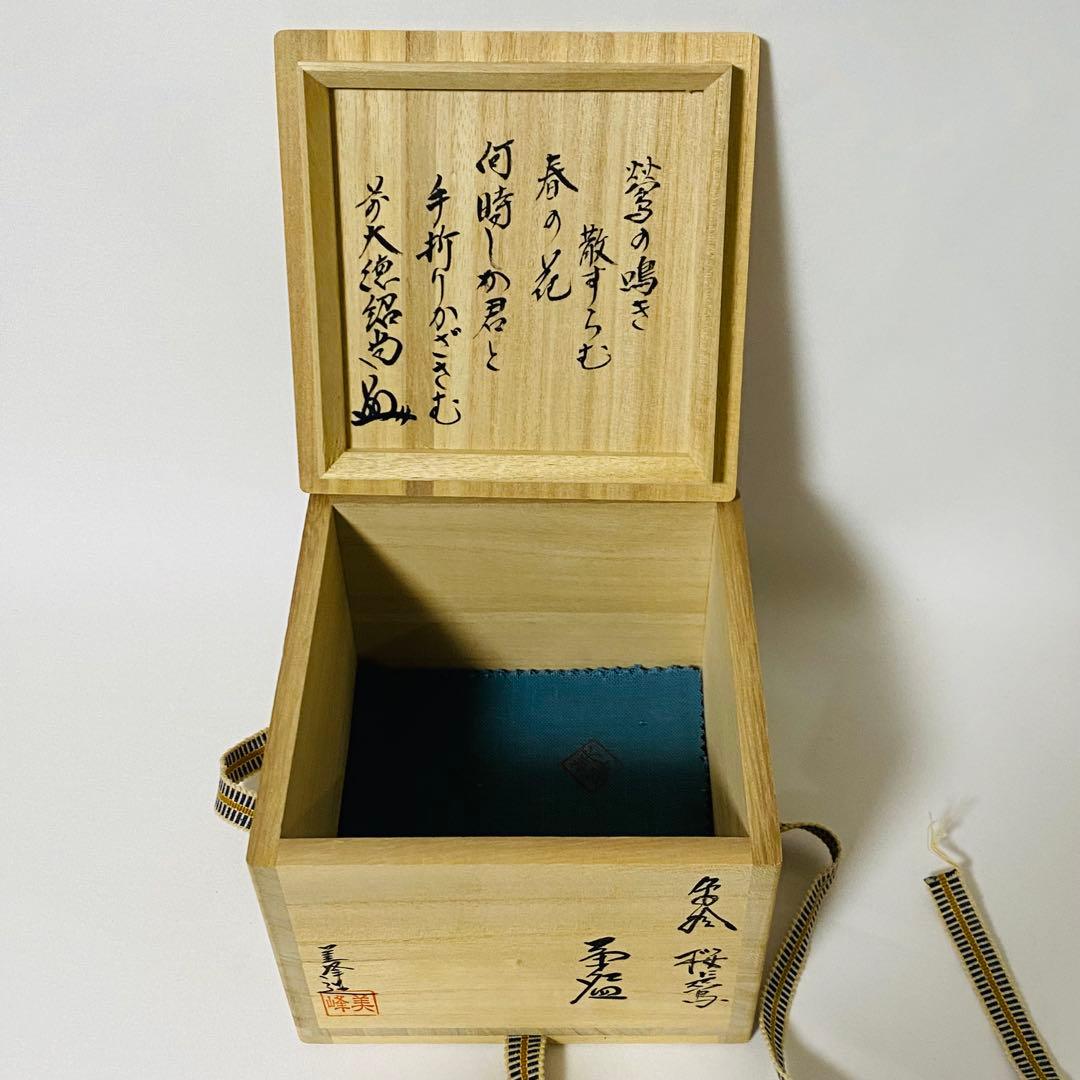 鶯の鳴き
散すらむ
春の花
何時しか君と
手折りかざさむ
前大徳紹尚
色絵 桜ニ鶯
茶碗
美峰造
美峰